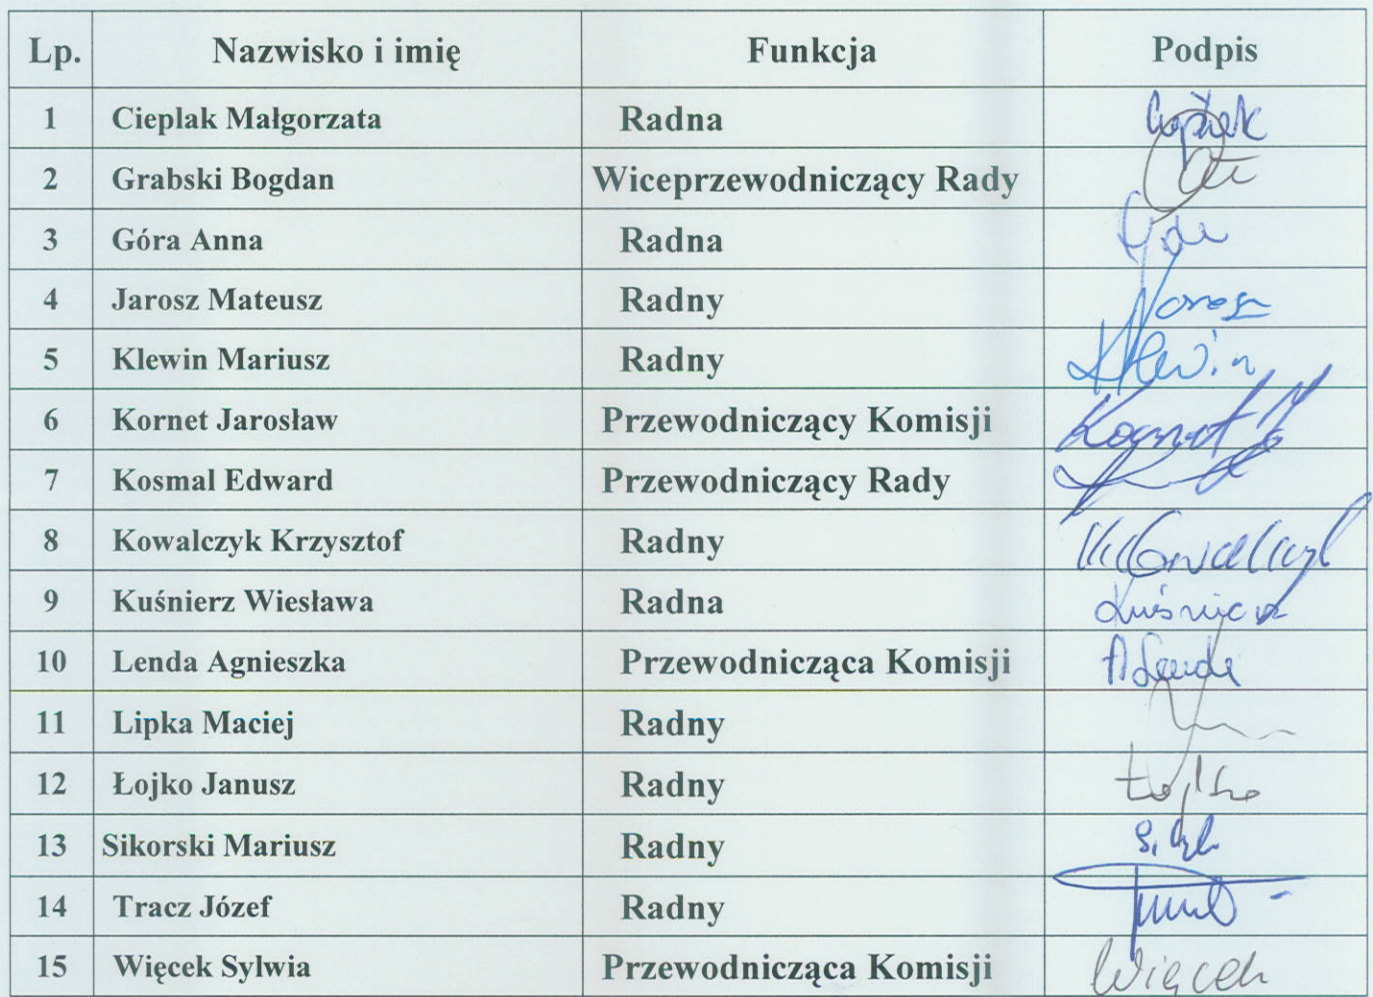 Lp. Nazwisko i imię Funkcja Podpis
1 Cieplak Małgorzata Radna
2 Grabski Bogdan Wiceprzewodniczący Rady
3 Góra Anna Radna
4 Jarosz Mateusz Radny
5 Klewin Mariusz Radny Klewin
6 Kornet Jarosław Przewodniczący Komisji Kornet
7 Kosmal Edward Przewodniczący Rady
8 Kowalczyk Krzysztof Radny
9 Kuśnierz Wiesława Radna Kuśnierz
10 Lenda Agnieszka Przewodnicząca Komisji A Lenda
11 Lipka Maciej Radny
12 Łojko Janusz Radny Łojko
13 Sikorski Mariusz Radny
14 Tracz Józef Radny
15 Więcek Sylwia Przewodnicząca Komisji Więcek